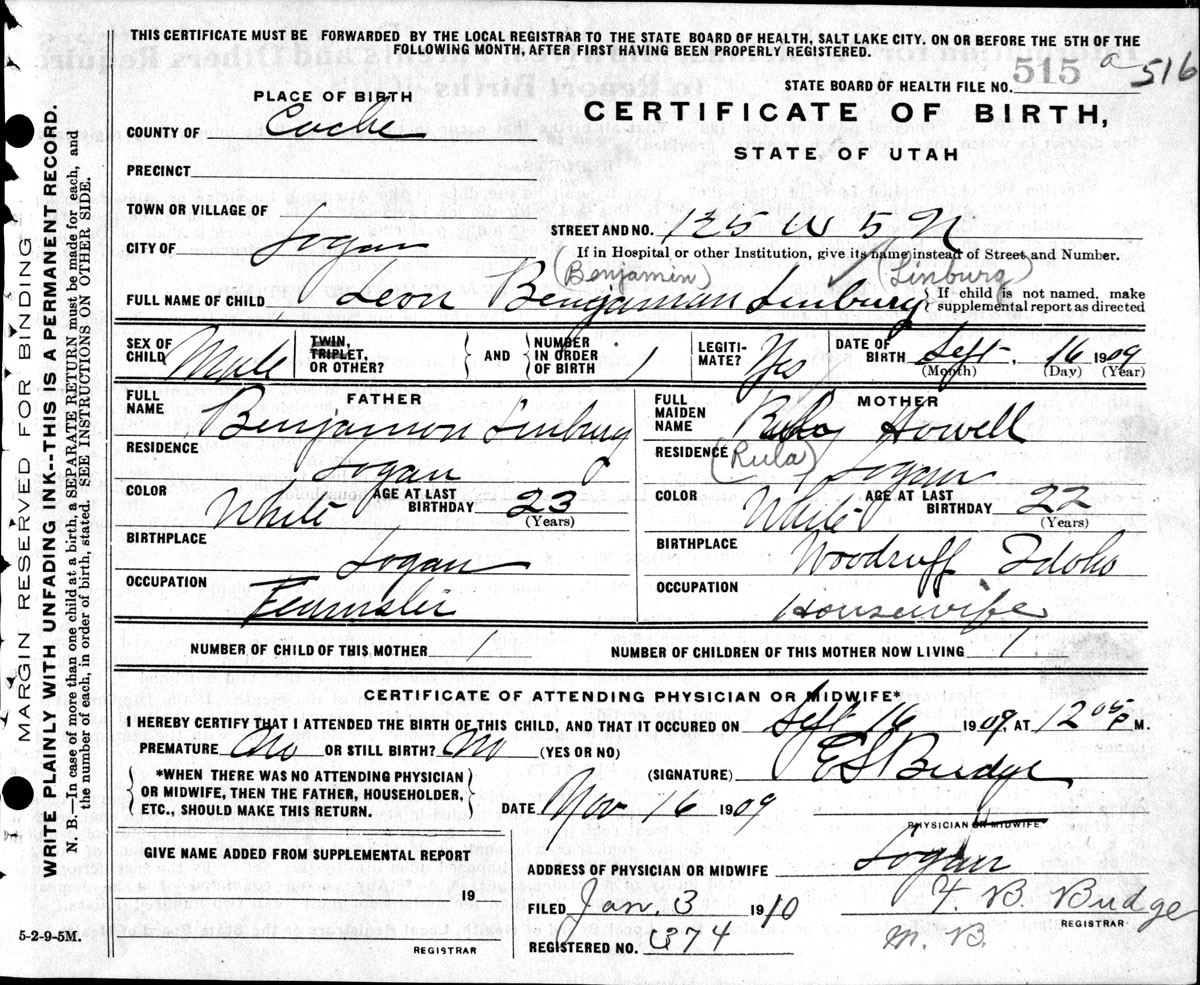 THIS CERTIFICATE MUST BE FORWARDED BY THE LOCAL REGISTRAR TO THE STATE BOARD OF HEALTH, SALT LAKE CITY. ON OR BEFORE THE 5TH OF THE
FOLLOWING MONTH, AFTER FIRST HAVING BEEN PROPERLY REGISTERED.
STATE BOARD OF HEALTH FILE NO. 515 a 516
PLACE OF BIRTH
CERTIFICATE OF BIRTH,
STATE OF UTAH
COUNTY OF Cache
PRECINCT
TOWN OR VILLAGE OF
STREET AND NO. 125 W 5 N
CITY OF Logan
If in Hospital or other Institution, give its name instead of Street and Number.
(Benjamin) (Linburg)
FULL NAME OF CHILD Leon Benjaman Linburg
{ If child is not named, make
supplemental report as directed
SEX OF CHILD Male
TWIN, TRIPLET, OR OTHER?
AND
NUMBER IN ORDER OF BIRTH 1
LEGITI-MATE? Yes
DATE OF BIRTH Sept. 16 1909
(Month) (Day) (Year)
FATHER
FULL NAME Benjamon Linburg
RESIDENCE Logan
COLOR White AGE AT LAST BIRTHDAY 23
(Years)
BIRTHPLACE Logan
OCCUPATION
MOTHER
FULL MAIDEN NAME Howell
RESIDENCE (Rula) Logan
COLOR White AGE AT LAST BIRTHDAY 22
(Years)
BIRTHPLACE Woodruff Idaho
OCCUPATION Housewife
NUMBER OF CHILD OF THIS MOTHER 1
NUMBER OF CHILDREN OF THIS MOTHER NOW LIVING 1
CERTIFICATE OF ATTENDING PHYSICIAN OR MIDWIFE*
I HEREBY CERTIFY THAT I ATTENDED THE BIRTH OF THIS CHILD, AND THAT IT OCCURED ON Sept 16 1909, AT 12 05 P M.
PREMATURE No OR STILL BIRTH? No (YES OR NO)
*WHEN THERE WAS NO ATTENDING PHYSICIAN
OR MIDWIFE, THEN THE FATHER, HOUSEHOLDER,
ETC., SHOULD MAKE THIS RETURN.
(SIGNATURE) E S Budge
DATE Nov 16 1909
PHYSICIAN OR MIDWIFE
GIVE NAME ADDED FROM SUPPLEMENTAL REPORT
19
REGISTRAR
ADDRESS OF PHYSICIAN OR MIDWIFE Logan
FILED Jan. 3 1910
T. B. Budge
REGISTRAR
M. B.
REGISTERED NO. 374
5-2-9-5M.
MARGIN RESERVED FOR BINDING
WRITE PLAINLY WITH UNFADING INK--THIS IS A PERMANENT RECORD.
N. B.—In case of more than one child at a birth, a SEPARATE RETURN must be made for each, and
the number of each, in order of birth, stated. SEE INSTRUCTIONS ON OTHER SIDE.